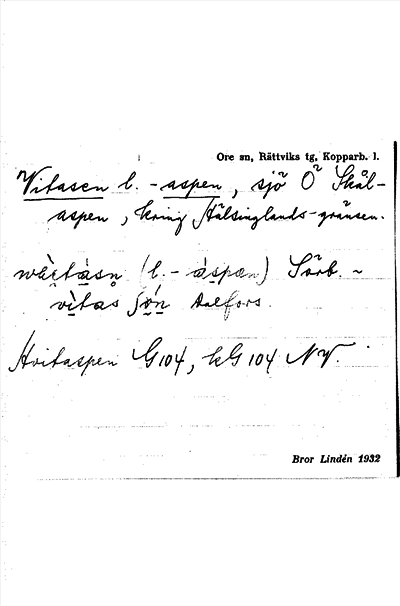 Ore sn, Rättviks tg, Kopparb. l.
Vitasen l. -aspen, sjö Ö Skål-
aspen, kring Hälsinglands-gränsen.
(l. - àspæn) Sörb. ~
vìtas Aalfors.
Hvitaspen G 104, kG 104 NV.
Bror Lindén 1932